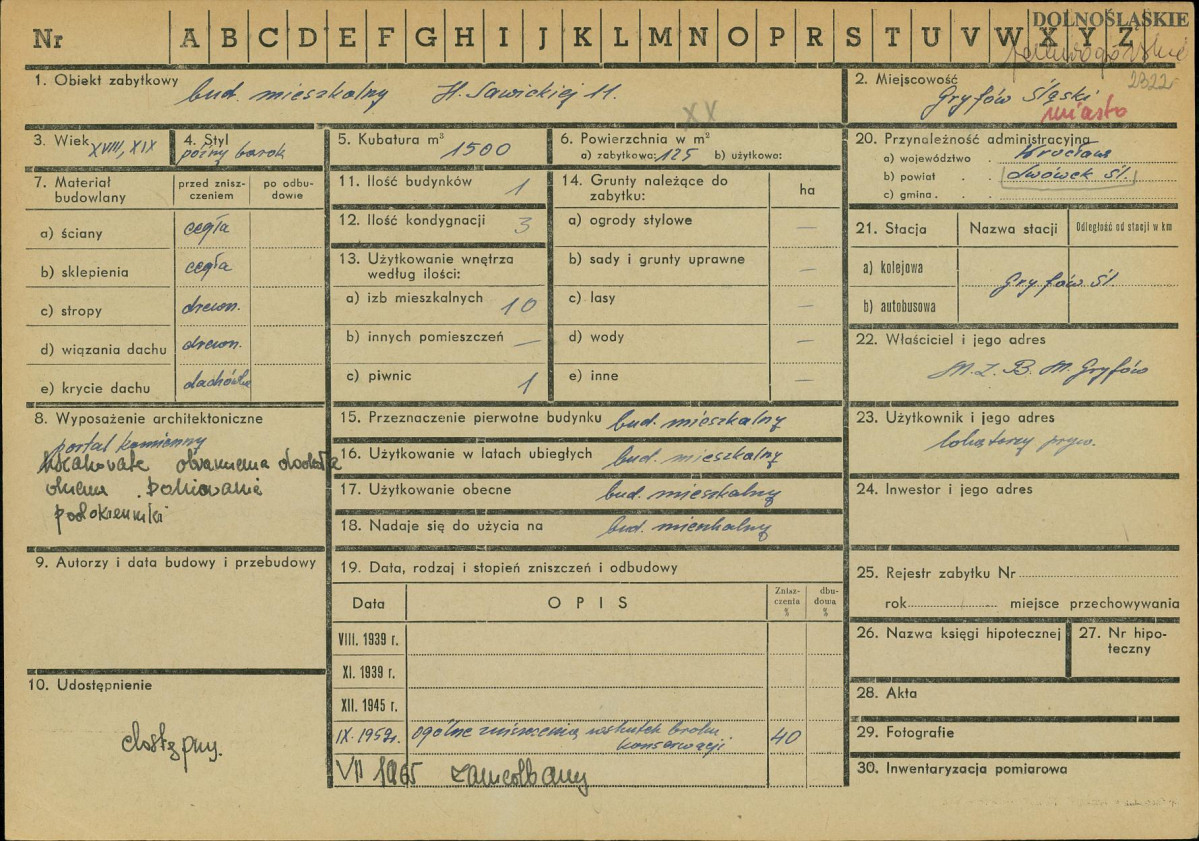 DOLNOŚLĄSKIE
Nr A B C D E F G H I J K L M N O P R S T U V W X Y Z
jeleniogórskie
2322
1. Obiekt zabytkowy
bud. mieszkalny H. Sawickiej 11.
2. Miejscowość
Gryfów Śląski
miasto
3. Wiek XVIII, XIX
4. Styl
późny barok
5. Kubatura m³
1500
XX
6. Powierzchnia w m²
a) zabytkowa: 125 b) użytkowo:
7. Materiał budowlany
przed znisz-
czeniem
po odbu-
dowie
a) ściany cegła
b) sklepienia cegła
c) stropy drewn.
d) wiązania dachu drewn.
e) krycie dachu dachówka
8. Wyposażenie architektoniczne
portal kamienny
obramienia
okienna
podokienniki
9. Autorzy i data budowy i przebudowy
10. Udostępnienie
dostępny.
11. Ilość budynków 1
12. Ilość kondygnacji 3
13. Użytkowanie wnętrza
według ilości:
a) izb mieszkalnych 10
b) innych pomieszczeń —
c) piwnic 1
14. Grunty należące do
zabytku:
ha
a) ogrody stylowe —
b) sady i grunty uprawne —
c) lasy —
d) wody —
e) inne —
15. Przeznaczenie pierwotne budynku bud. mieszkalny
16. Użytkowanie w latach ubiegłych bud. mieszkalny
17. Użytkowanie obecne bud. mieszkalny
18. Nadaje się do użycia na bud. mieszkalny
19. Data, rodzaj i stopień zniszczeń i odbudowy
Data
OPIS
Znisz-
czenia
%
dbu-
dowa
%
VIII. 1939 r.
XI. 1939 r.
XII. 1945 r.
IX. 1959r. ogólne zniszczenia wskutek braku
konserwacji 40
VII 1965 zaniedbany
20. Przynależność administracyjna
a) województwo . Wrocław
b) powiat . . Lwówek Śl.
c) gmina . .
21. Stacja
Nazwa stacji
Odległość od stacji w km
a) kolejowa
Gryfów Śl.
b) autobusowa
22. Właściciel i jego adres
M. Z. B. M. Gryfów
23. Użytkownik i jego adres
lokatorzy pryw.
24. Inwestor i jego adres
25. Rejestr zabytku Nr
rok miejsce przechowywania
26. Nazwa księgi hipotecznej
27. Nr hipo-
teczny
28. Akta
29. Fotografie
30. Inwentaryzacja pomiarowa